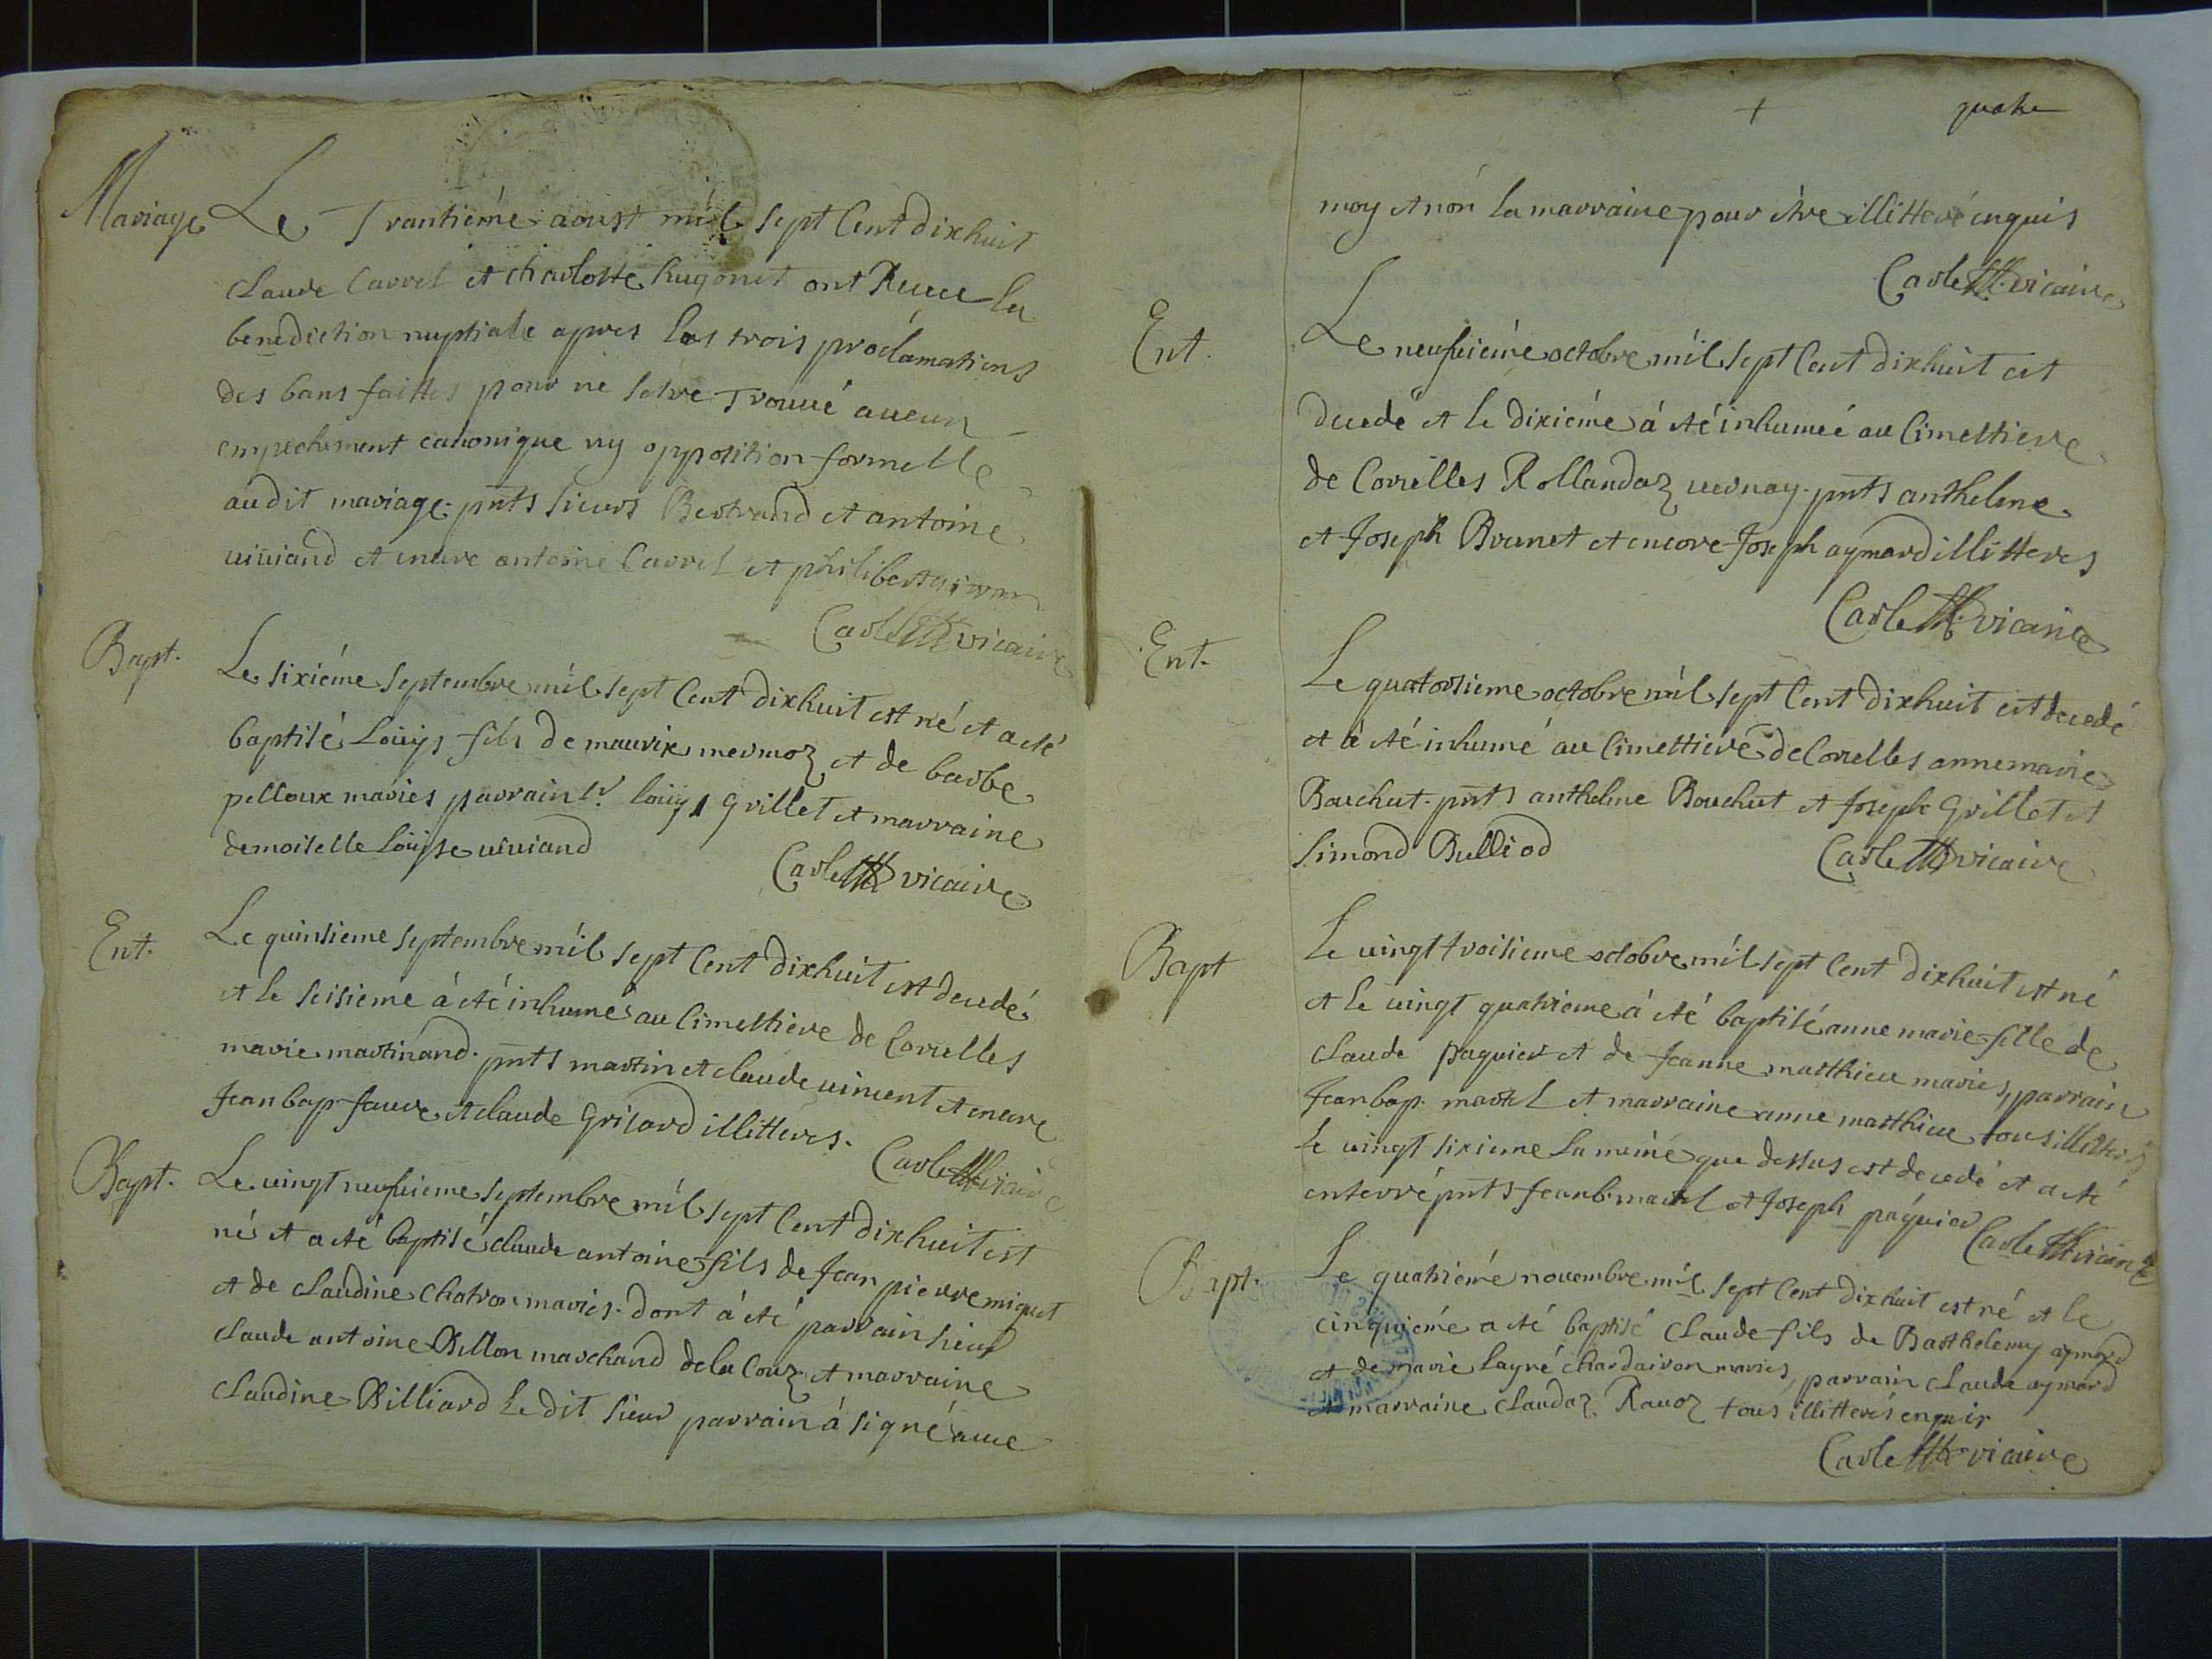 Mariage
Le Trantiéme aoust mil sept Cent dixhuit
claude Carrel et charlotte hugonet ont Receu la
benediction nuptiale apres les trois proclamations
des bans faittes pour ne setre Trouué aucun
empechement canonique ny opposition formelle
audit mariage. pnts sieurs Bertrand et antoine
uiuiand et encore antoine Carrel et philibert
Carle vicaire
Bapt.
Le sixiéme septembre mil sept Cent dixhuit est né et a eté
baptisé Loüys fils de maurix mermoz et de barbe
pelloux maries parrain sr. loüys grillet et marraine
demoiselle Loüyse uiuiand
Carle vicaire
Ent.
Le quinsieme septembre mil sept Cent dixhuit est decedé
et le seisieme à eté inhumé au Cimettiere de Corcelles
marie martinand. pnts martin et claude uincent et encore
Jean bap. faure et claude Grisard illitteres.
Carle vicaire
Bapt.
Le uingt neufuieme septembre mil sept Cent dixhuit est
né et a eté baptisé claude antoine fils de Jean pierre miguet
et de claudine chatron maries. dont à eté parrain sieur
claude antoine Billon marchand de la Couz et marraine
claudine Billiard le dit sieur parrain à signé auec
quatre
moy et non la marraine pour être illitteré enquis
Carle vicaire
Ent.
Le neufuieme octobre mil sept Cent dixhuit est
decedé et le dixiéme à eté inhumeé au Cimettiere
de Corcelles Rollandaz uernay. pnts anthelme
et Joseph Brunet et encore Joseph aymard illitteres
Carle vicaire
Ent.
Le quatorsieme octobre mil sept Cent dixhuit est decedé
et à eté inhumé au Cimettiere de Corcelles anne marie
Bouchut. pnts anthelme Bouchut et Joseph Grillet et
simond Bulliod
Carle vicaire
Bapt
Le uingt troisieme octobre mil sept Cent dixhuit est né
et le uingt quatrieme à eté baptisé anne marie fille de
claude paquier et de Jeanne matthieu maries, parrain
Jean bap. martel et marraine anne matthieu tous illitteres
le uingt sixieme la même que dessus est decedé et a eté
enterré pnts Jean b. martel et Joseph páquier
Carle vicaire
Bapt.
Le quatriéme nouembre mil sept Cent dixhuit est né et le
cinquiéme a eté baptisé claude fils de Barthelemy aymard
et de marie layné chardairon maries, parrain claude aymard
et marraine claudaz Rauoz tous illitterés enquis
Carle vicaire